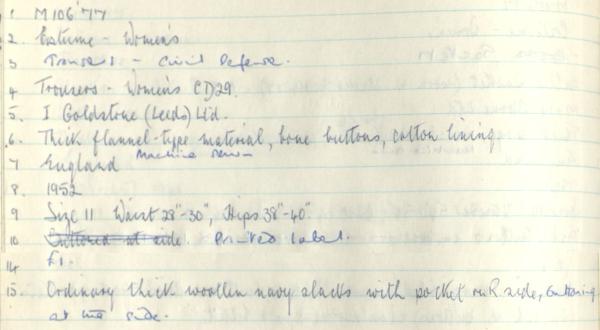 1 M106'77
2. Costume - Women's
3 Trousers - Civil Defense.
4 Trousers - Women's CD29.
5. I Goldstone (Leeds) Ltd.
6. Thick flannel-type material, bone buttons, cotton lining
Machine sewn
7 England
8. 1952
9 Size 11 Waist 28"-30" Hips 38"-40".
10 Buttoned at side. Printed label.
14 £1.
15. Ordinary thick woollen navy slacks with pocket on R side, buttoning
at the side.